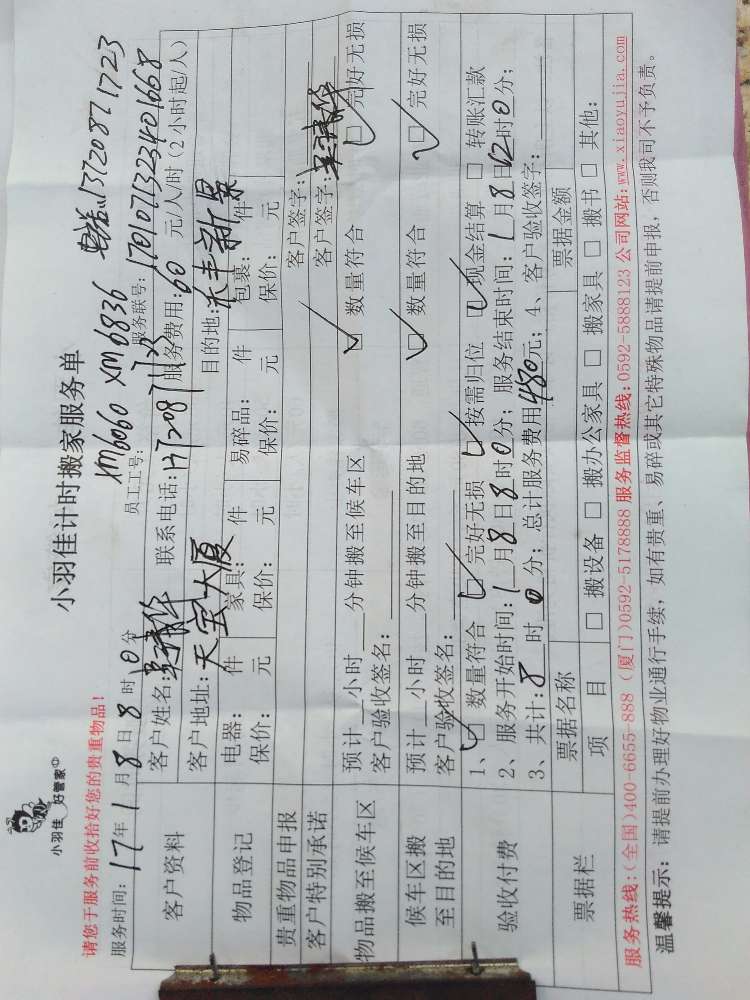 小羽佳 好管家
小羽佳计时搬家服务单
请您于服务前收拾好您的贵重物品！
员工工号：XM6060 XM6836
服务时间：17年1月8日8时0分
服务联号：1701071323401668
客户资料
客户姓名： 联系电话：13720871723 服务费用：60 元/人/时（2小时起/人）
客户地址：天宝大厦 目的地：禾丰新景
物品登记
电器： 件 家具： 件 易碎品： 件 包裹： 件
保价： 元 保价： 元 保价： 元 保价： 元
贵重物品申报 客户签字：
客户特别承诺 客户签字：
物品搬至候车区
预计__小时__分钟搬至候车区 □ 数量符合 □ 完好无损
客户验收签名：
候车区搬至目的地
预计__小时__分钟搬至目的地 □ 数量符合 □ 完好无损
客户验收签名：
验收付费
1、□ 数量符合 □ 完好无损 □ 按需归位 □ 现金结算 □ 转账汇款
2、服务开始时间：1月8日8时0分；服务结束时间：1月8日12时0分；
3、共计：8时0分；总计服务费用480元；4、客户验收签字：
票据栏
票据名称 票据金额
项 目 □ 搬设备 □ 搬办公家具 □ 搬家具 □ 搬书 □ 其他：
服务热线：(全国)400-6655-888 (厦门)0592-5178888 服务监督热线：0592-5888123 公司网站：www.xiaoyujia.com
温馨提示：请提前办理好物业通行手续，如有贵重、易碎或其它特殊物品请提前申报，否则我司不予负责。